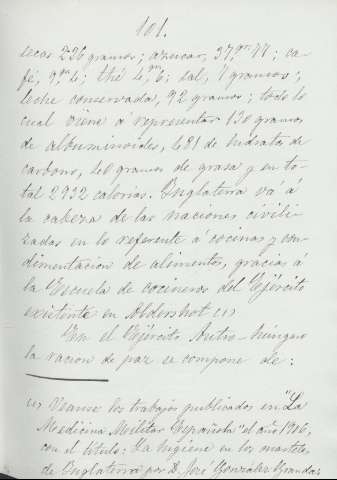 101.
secas 236 gramos; azucar, 37,gr 77; ca-
fé, 9,gr 4; thé 4,gr 6; sal, 7 gramos;
leche conservada, 92 gramos; todo lo
cual viene á representar 130 gramos
de albuminoides, 481 de hidratos de
carbono, 40 gramos de grasa y en to-
tal 2932 calorías. Inglaterra vá á
la cabeza de las naciones civili-
zadas en lo referente á cocinas y con-
dimentacion de alimentos, gracias á
la Escuela de cocineros del Ejército
existente en Aldershot (1)
En el Ejército Austro-húngaro
la racion de paz se compone de:
(1) Veanse los trabajos publicados en "La
Medicina Militar Española" el año 1906,
con el título: La higiene en los cuarteles
de Inglaterra por D. José González Granda.